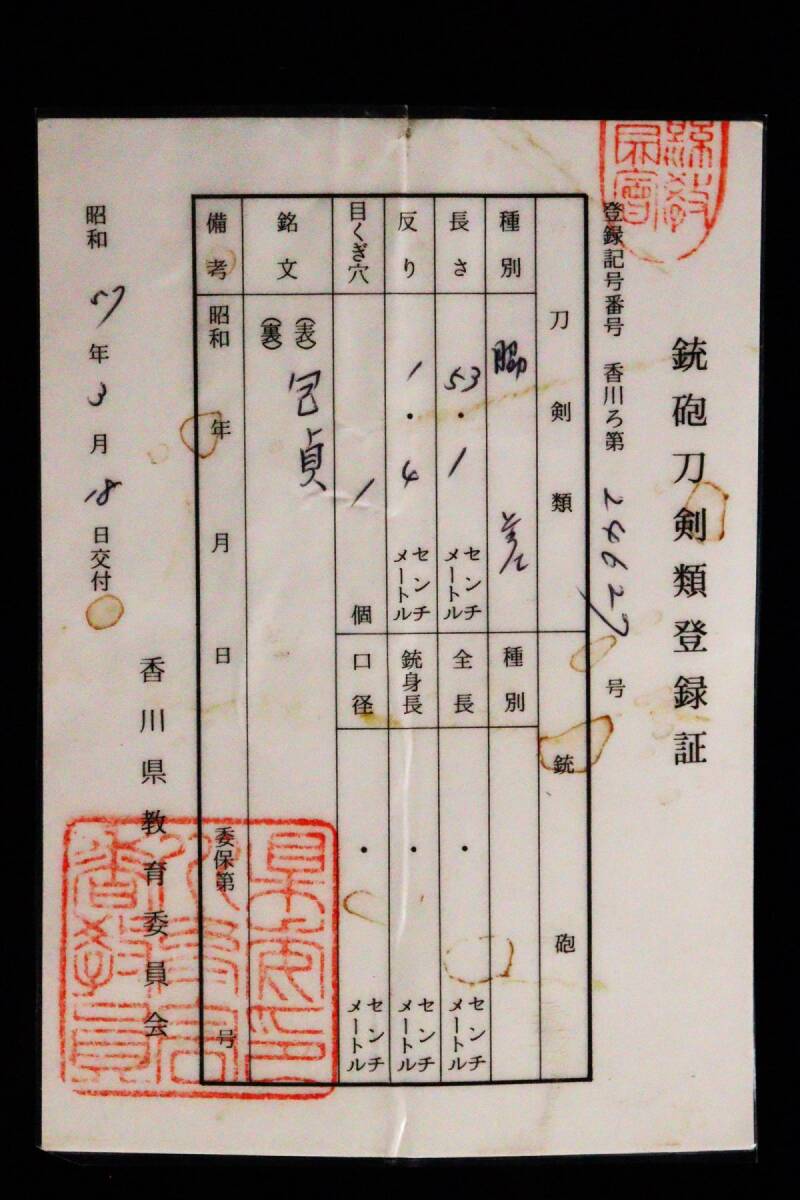 銃砲刀剣類登録証
登録記号番号 香川ろ第 24627 号
刀剣類
銃砲
種別 脇差
種別
長さ 53・1 センチメートル
全長 ・ センチメートル
反り 1・4 センチメートル
銃身長 ・ センチメートル
目くぎ穴 1 個
口径 ・ センチメートル
銘文 (表) 包貞
(裏)
備考 昭和 年 月 日 委保第 号
昭和 57 年 3 月 18 日交付
香川県教育委員会